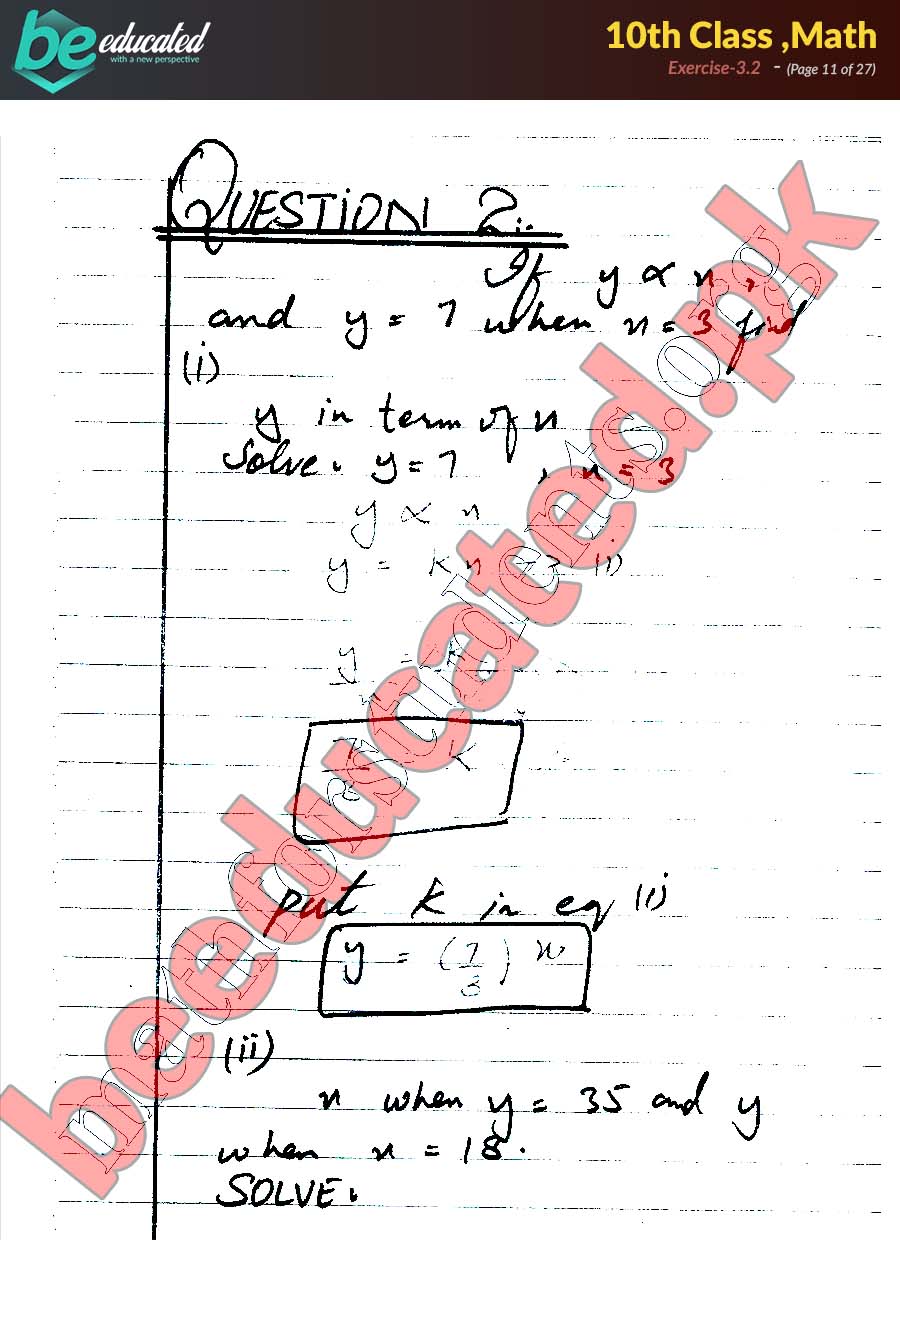 be educated
with a new perspective
10th Class ,Math
Exercise-3.2 - (Page 11 of 27)
QUESTION 2:-
If y ∝ x,
and y = 7 when x = 3 find
(i)
y in term of x
Solve. y = 7 , x = 3
y ∝ x
y = kx → (i)
y/x = k
7/3 = k
put k in eq (i)
y = (7/3) x
(ii)
x when y = 35 and y
when x = 18.
SOLVE.
beeducated.pk